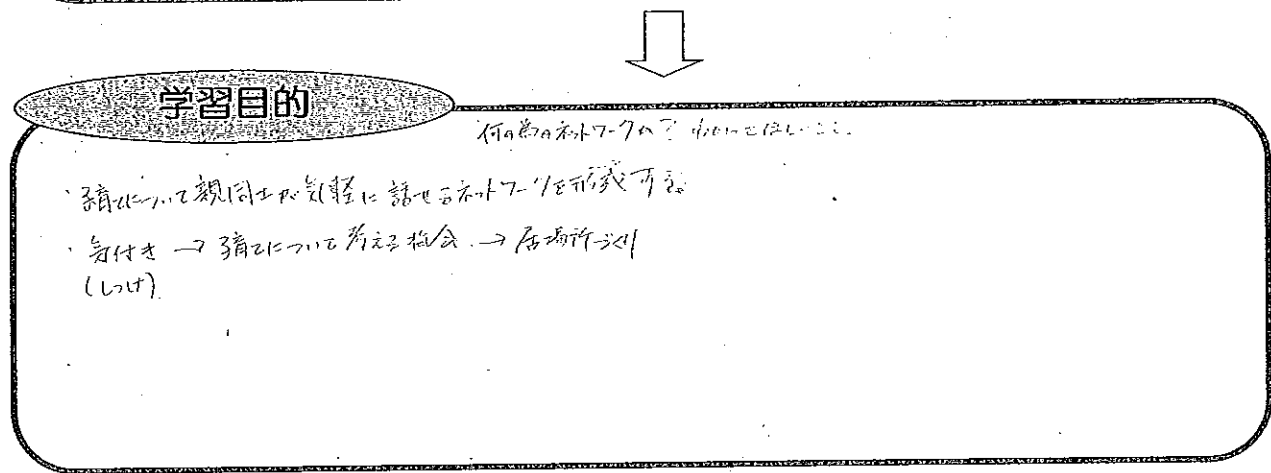 学習目的
何の為のネットワークか? わかってほしいこと。
・子育てについて親同士が気軽に話せるネットワークを形成する。
・気付き → 子育てについて考える機会 → 居場所づくり
(しつけ)